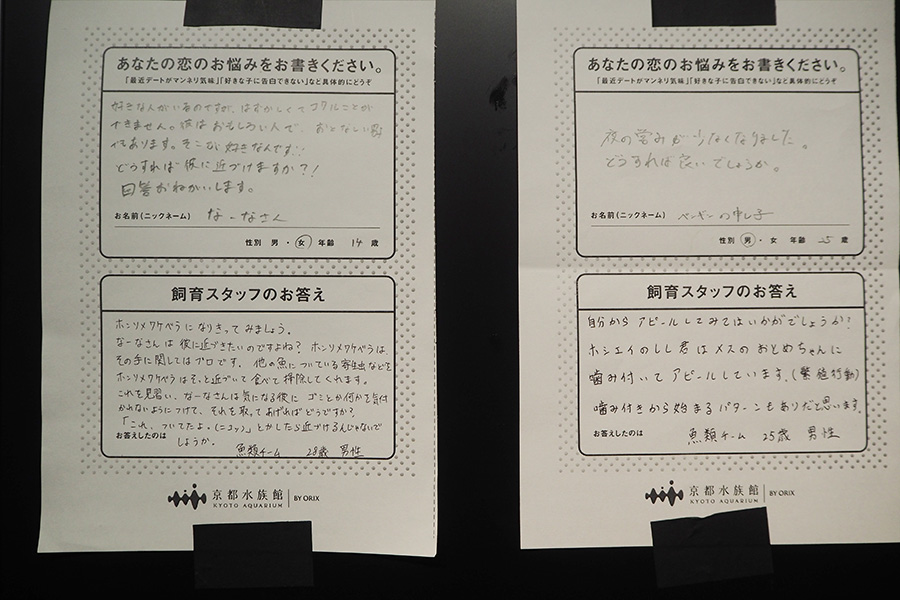 あなたの恋のお悩みをお書きください。
「最近デートがマンネリ気味」「好きな子に告白できない」など具体的にどうぞ
好きな人がいるのですが、はずかしくてコクルことが
できません。彼はおもしろい人で、おとなしい
もあります。そこが好きなんです!!
どうすれば彼に近づけますか?!
回答おねがいします。
お名前(ニックネーム) なーなさん
性別 男・女 年齢 14 歳
飼育スタッフのお答え
ホンソメワケベラになりきってみましょう。
なーなさんは彼に近づきたいのですよね? ホンソメワケベラは、
その手に関してはプロです。他の魚についている寄生虫などを
ホンソメワケベラはそっと近づいて食べて掃除してくれます。
これを見習い、なーなさんは気になる彼にゴミとか何かを気付
かれないようにつけて、それを取ってあげればどうですか?
「これ、ついてたよ。(ニコッ)」とかしたら近づけるんじゃないで
しょうか。
お答えしたのは 魚類チーム 28歳 男性
京都水族館 BY ORIX
KYOTO AQUARIUM
あなたの恋のお悩みをお書きください。
「最近デートがマンネリ気味」「好きな子に告白できない」など具体的にどうぞ
夜の営みが少なくなりました。
どうすれば良いでしょうか。
お名前(ニックネーム) ペンギンの申し子
性別 男・女 年齢 25 歳
飼育スタッフのお答え
自分からアピールしてみてはいかがでしょうか?
ホシエイのしし君はメスのおとめちゃんに
噛み付いてアピールしています。(繁殖行動)
噛み付きから始まるパターンもありだと思います。
お答えしたのは 魚類チーム 25歳 男性
京都水族館 BY ORIX
KYOTO AQUARIUM